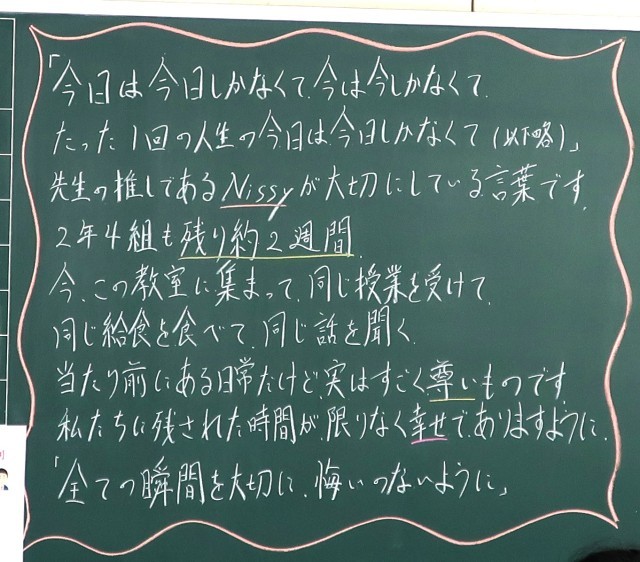 「今日は今日しかなくて、今は今しかなくて、
たった1回の人生の今日は、今日しかなくて(以下略)」
先生の推しであるNissyが大切にしている言葉です。
2年4組も残り約2週間。
今、この教室に集まって、同じ授業を受けて、
同じ給食を食べて、同じ話を聞く。
当たり前にある日常だけど、実はすごく尊いものです。
私たちに残された時間が、限りなく幸せで、ありますように。
「全ての瞬間を大切に、悔いのないように」